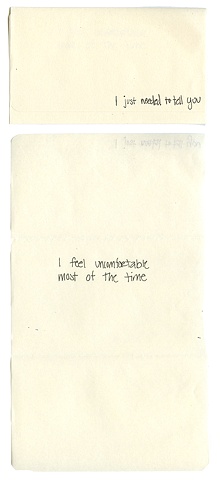 I just needed to tell you
I feel uncomfortable
most of the time